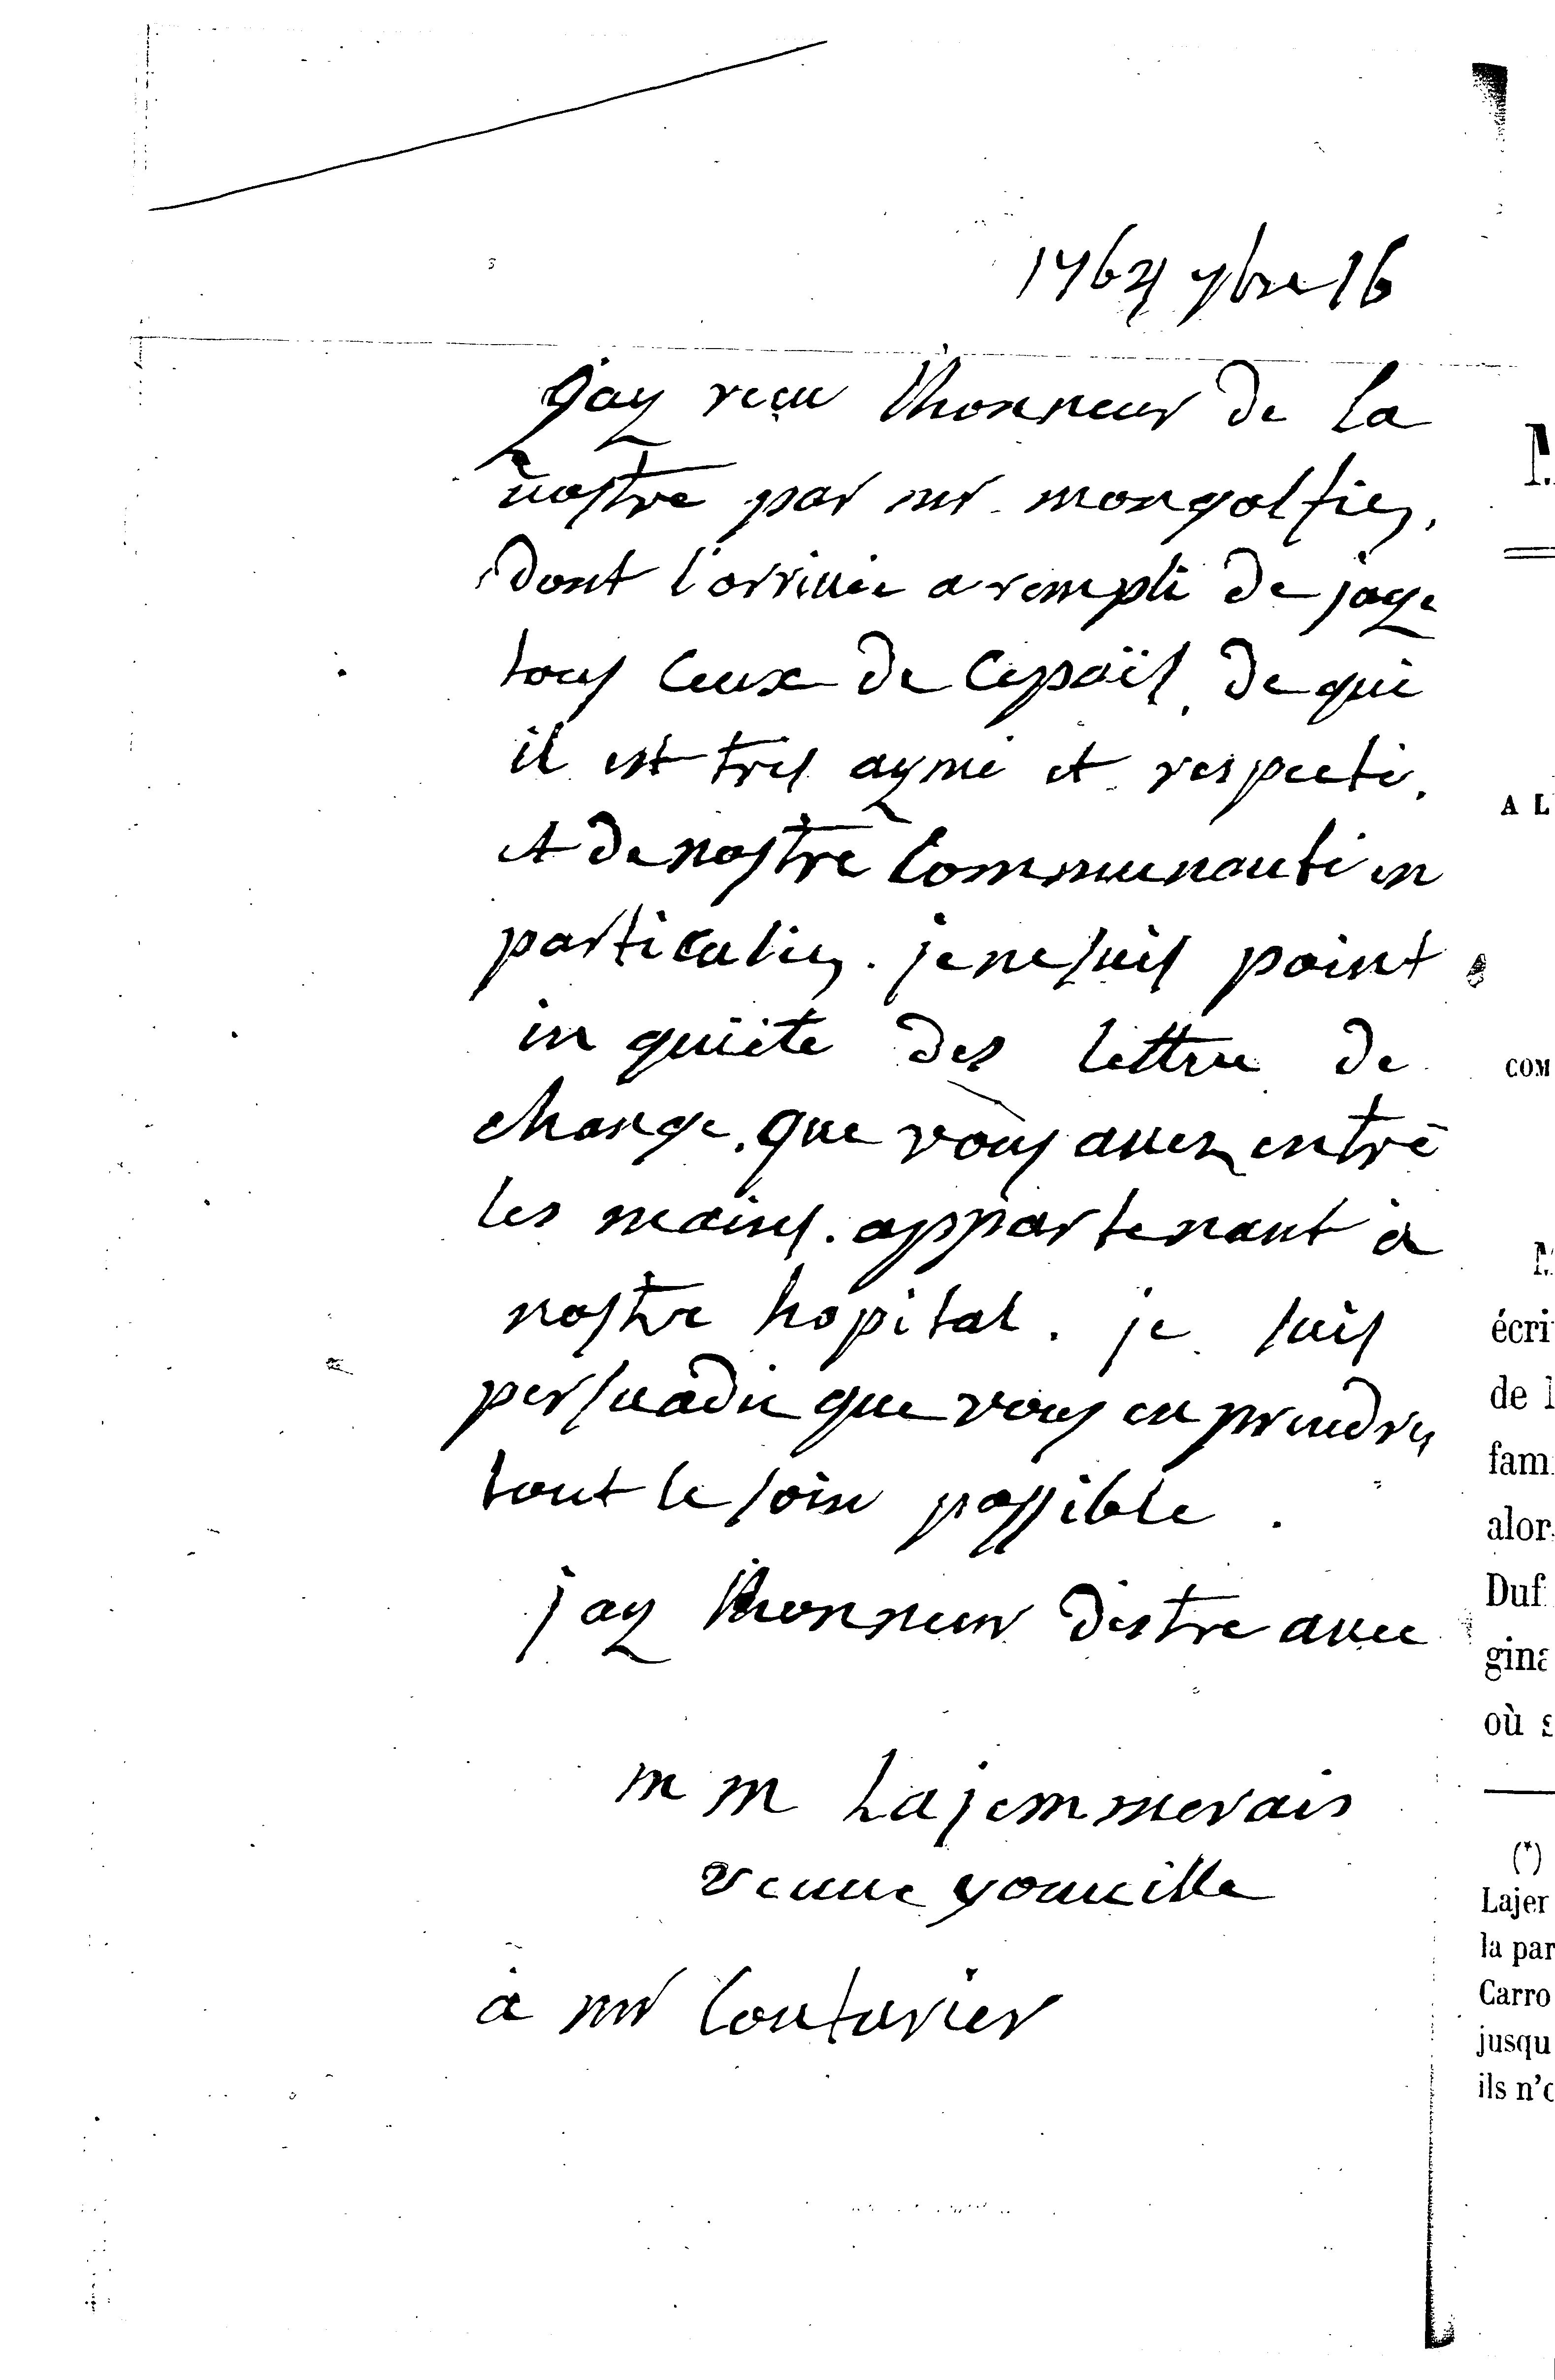 1764 7bre 16
Jay reçu lhonneur de la
vostre par mr mongolfier,
dont l'arrivée a rempli de joye
tous ceux de cepaÿs, de qui
il est tres aymé et respecté,
et de nostre Communauté en
particulier. je ne suis point
in quiète des lettre de
change, que vous avez entre
les mains. appartenant à
nostre hopital. je suis
persuadée que vous en prendrez
tout le soin possible.
jay lhonneur destre avec
m m Lajemmerais
veuve youville
à mr Couturier
M
A L
COM
M
écri
de l
fam
alor
Duf
gina
où s
(*)
Lajer
la par
Carro
jusqu
ils n'o